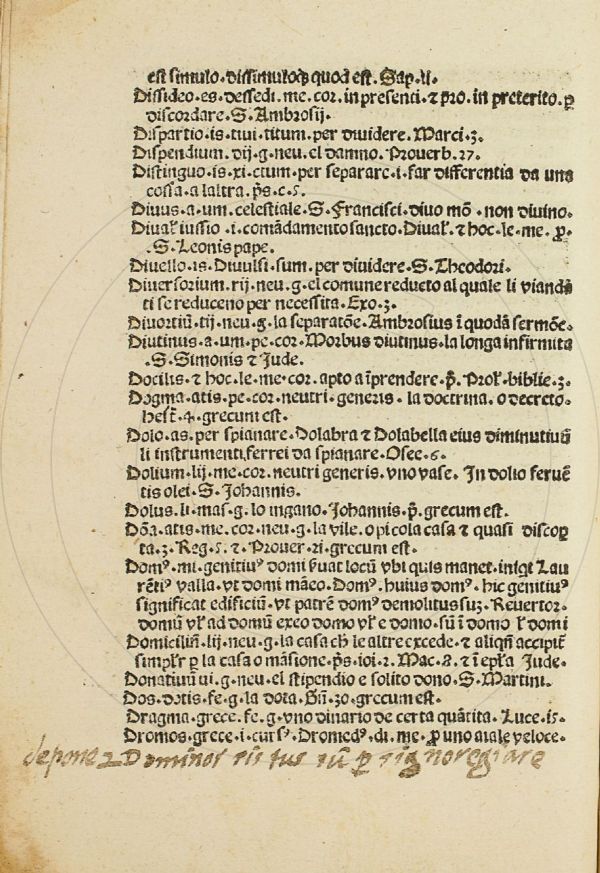 est simulo. dissimuloqꝫ quod est. Sap. ii.
Dissideo. es. dessedi. me. cor. in presenci. ⁊ pro. in preterito. ꝑ
discordare. S. Ambrosij.
Dispartio. is. tiui. titum. per diuidere. Marci. 3.
Dispendium. dij. g. neu. el damno. Prouerb. 27.
Distinguo. is. xi. ctum. per separare. i. far differentia da una
cossa. a laltra. p̄s. c. 5.
Diuus. a. um. celestiale. S. Francisci. diuo mō. non diuino.
Diual' iussio. i. comādamento sancto. Diual'. ⁊ hoc. le. me. ꝓ.
.S. Leonis pape.
Diuello. is. Diuulsi. sum. per diuidere. S. Theodori.
Diuersorium. rij. neu. g. el comune reducto al quale li uianda
ti se reduceno per necessita. Exo. 3.
Diuortiū. tij. neu. g. la separatōe. Ambrosius ī quodā sermōe.
Diutinus. a. um. pe. cor. Morbus diutinus. la longa infirmita
.S. Simonis ⁊ Jude.
Docilis. ⁊ hoc. le. me. cor. apto a īprendere. p̄. Prol'. biblie. 3.
Dogma. atis. pe. cor. neutri. generis. la doctrina. o decreto.
hest̄. 4. grecum est.
Dolo. as. per spianare. Dolabra ⁊ Dolabella eius diminutiuū
li instrumenti ferrei da spianare. Osee. 6.
Dolium. lij. me. cor. neutri generis. vno vase. In dolio feruē
tis olei. S. Johannis.
Dolus. li. mas. g. lo ingano. Johannis. p̄. grecum est.
Dōa. atis. me. cor. neu. g. la vile. o picola casa ⁊ quasi discoꝑ
ta. 3. Reg. 5. ⁊ Prouer. 21. grecum est.
Domꝰ. mi. genitiuꝰ domi ẜuat locū vbi quis manet. inigt Lau
rētiꝰ valla. vt domi māeo. Domꝰ. huius domꝰ. hic genitiuꝰ
significat edificiū. vt patrē domꝰ demolitus suꝫ. Reuertor.
domū vl' ad domū exeo domo vl' e domo. sū ī domo l' domi
Domiciliū. lij. neu. g. la casa ch̄ le altre excede. ⁊ aliqn̄ accipit̄
simpl'r ꝑ la casa o māsione. p̄s. ioi. 2. Mac. 8. ⁊ ī epl'a Jude.
Donatiuū ui. g. neu. el stipendio e solito dono. S. Martini.
Dos. dotis. fe. g. la dota. Gn̄. 30. grecum est.
Dragma. grece. fe. g. vno dinario de certa quātita. Luce. 15.
Dromos. grece. i. cursꝰ. Dromedꝰ. di. me. ꝓ uno aīale veloce.
depone 2 Dominor ris tus sū ꝑ signoregiare